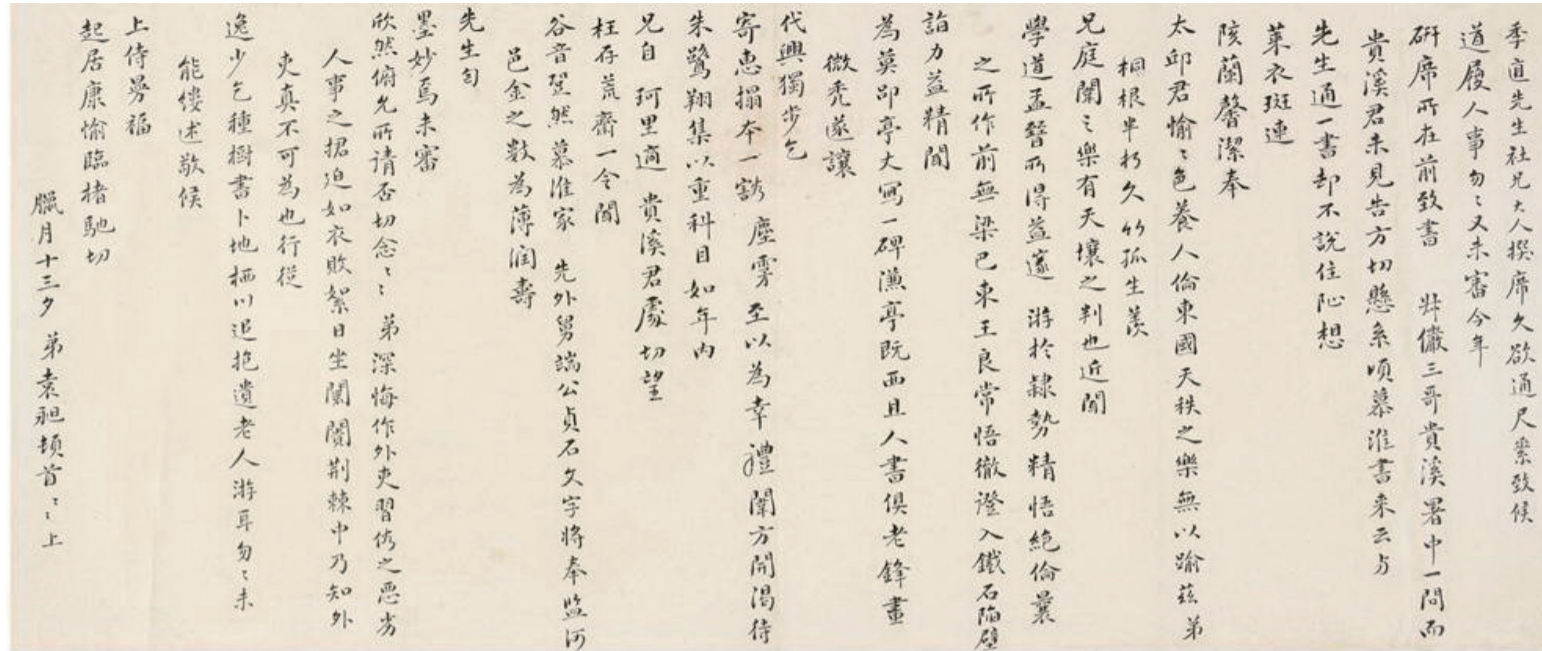 季直先生社兄大人撰席久欲通尺素致候
道履人事匆〻又未審今年
研席所在前致書 叔儼三哥貴溪署中一問而
貴溪君未見告方切懸系頃慕淮書来云与
先生通一書却不說住阯想
萊衣斑連
陔蘭馨潔奉
太邱君愉〻色養人倫東國天秩之樂無以踰茲弟
桐根半朽久竹孤生羨
兄庭闈之樂有天壤之判也近聞
學道孟晉所得益邃 游於隸勢精悟絕倫曩
之所作前無梁巴東王良常悟徹證入鐵石陷壁
詣力益精聞
為莫邵亭大寫一碑濂亭既西且人書俱老鋒畫
微秃遂讓
代興獨步乞
寄惠搨本一豁 塵雺至以為幸禮闈方開渴待
朱鷺翔集以重科目如年内
兄自珂里適 貴溪君處切望
枉存荒齋一令聞
谷音跫然慕淮家 先外舅端公貞石文字將奉監河
邑金之數為薄润壽
先生匄
墨妙焉未審
欣然俯允所请否切念〻弟深悔作外吏習俗之惡劣
人事之捃迫如衣敗絮日坐闤闠荆棘中乃知外
吏真不可為也行從
逸少乞種樹書卜地栖川追抱遺老人游耳匆〻未
能缕述敬候
上侍曼福
起居康愉臨楮馳切
臘月十三夕 弟袁昶頓首〻上